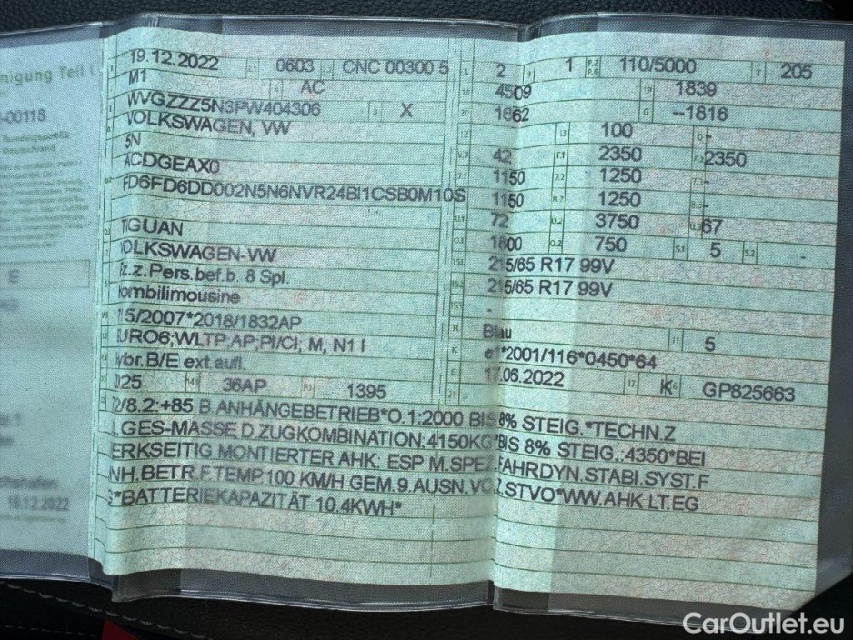 nigung Teil I
-00118
E
18.12.2022
19.12.2022 0603 CNC 00300 5
M1 AC
WVGZZZ5N3PW404306 X
VOLKSWAGEN, VW
5N
ACDGEAX0
FD6FD6DD002N5N6NVR24BI1CSB0M10S
TIGUAN
VOLKSWAGEN-VW
Fz.z.Pers.bef.b. 8 Spl.
ombilimousine
15/2007*2018/1832AP
EURO6;WLTP;AP;PI/CI; M, N1 I
ybr.B/E ext.aufl.
025 36AP 1395
2/8.2:+85 B.ANHÄNGEBETRIEB*O.1:2000 BIS
.GES-MASSE D.ZUGKOMBINATION:4150KG*BIS 8% STEIG.:4350*BEI
ERKSEITIG MONTIERTER AHK: ESP M.SPEZ.FAHRDYN.STABI.SYST.F
NH.BETR.F.TEMP.100 KM/H GEM.9.AUSN.VO Z.STVO*WW.AHK LT.EG
S*BATTERIEKAPAZITÄT 10.4KWH*
2 1 110/5000 205
4509 1839
1662 --1816
100 -
42 2350 2350
1150 1250 -
1150 1250 -
72 3750 67
1800 750 5 -
215/65 R17 99V
215/65 R17 99V
-
Blau 5
e1*2001/116*0450*64
17.06.2022 K GP825663
8% STEIG.*TECHN.Z
CarOutlet.eu